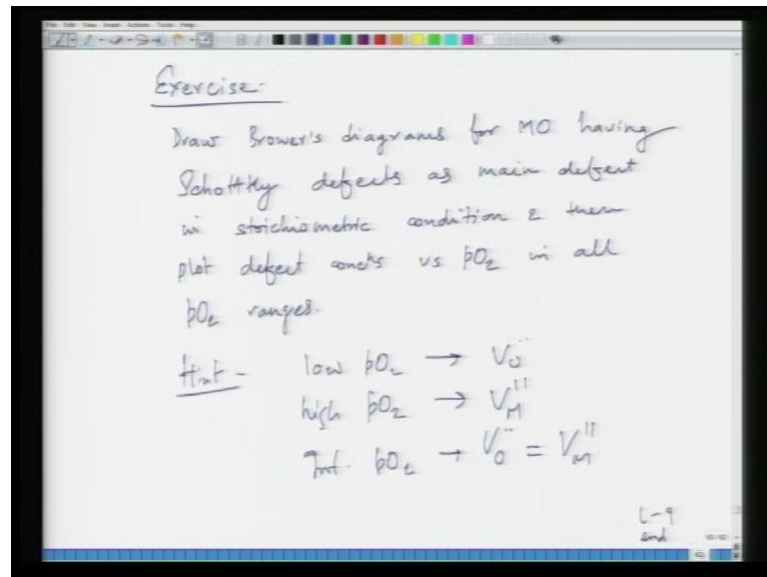 File Edit View Insert Actions Tools Help
Exercise-
Draw Brower's diagrams for MO having
Schottky defects as main defect
in stoichiometric condition & then
plot defect concns vs pO₂ in all
pO₂ ranges.
Hint - low pO₂ → V_O^••
high pO₂ → V_M^||
Int. pO₂ → V_O^•• = V_M^||
L-9
end